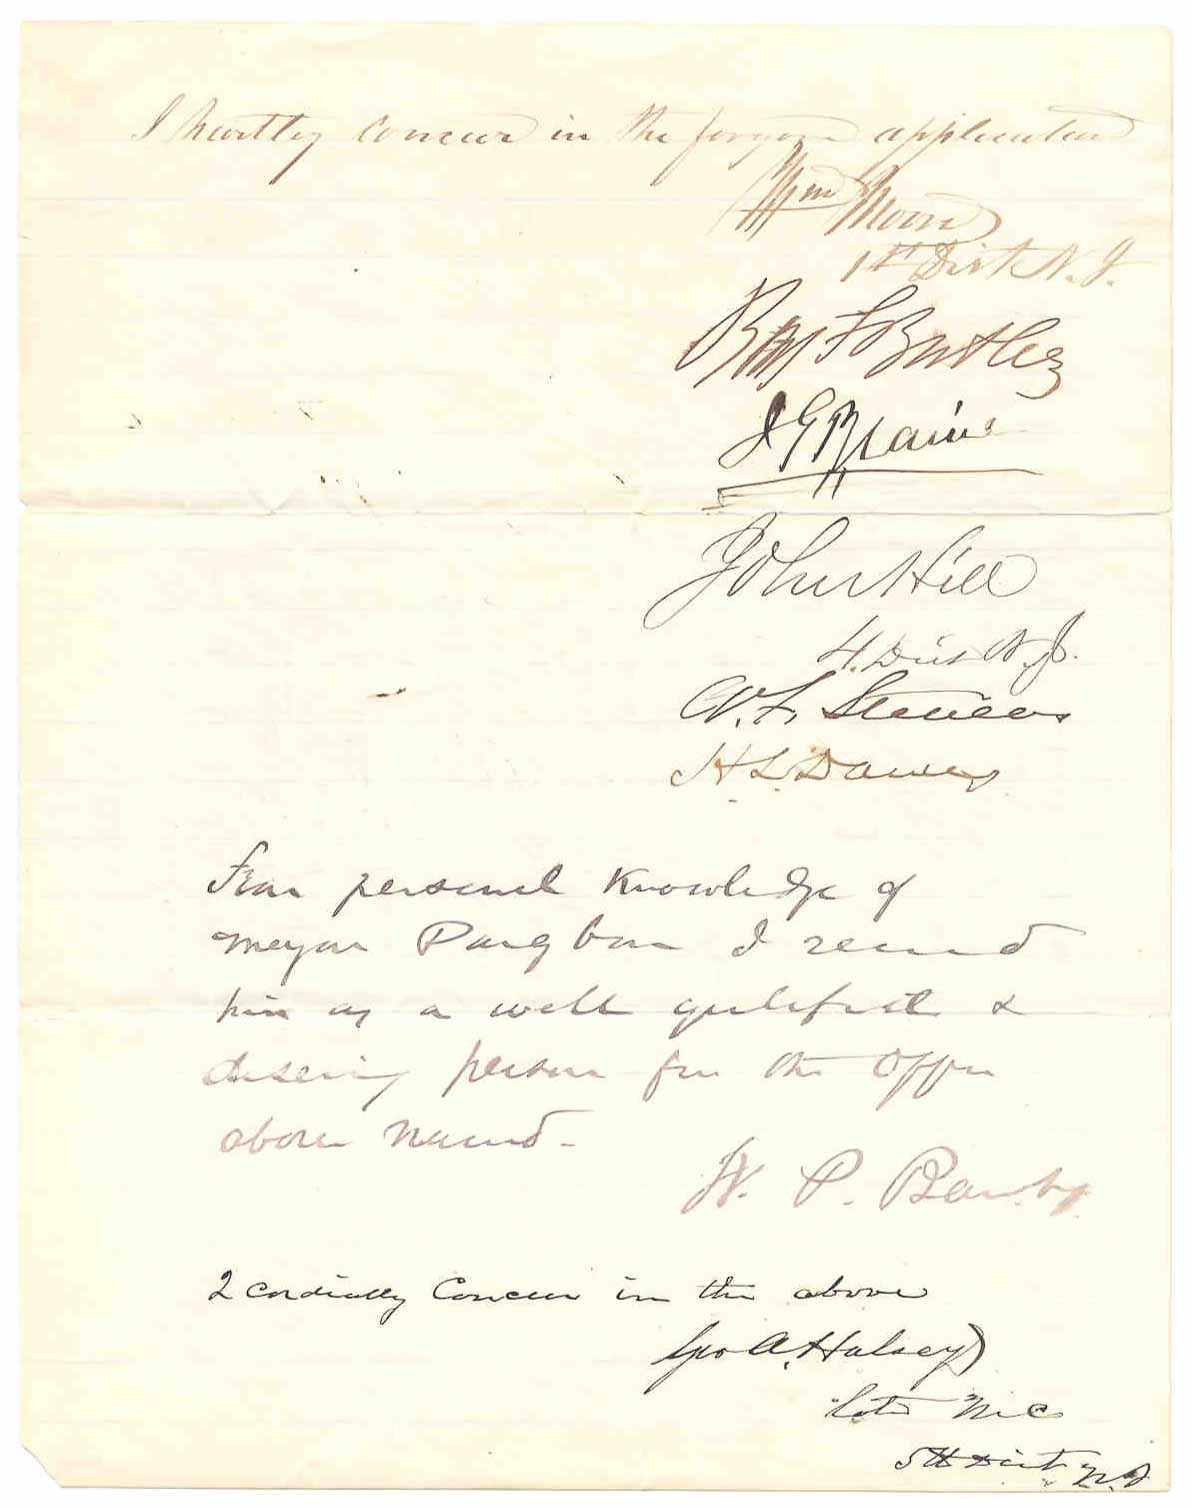 I heartly concur in the forgoin application
Wm Moore
1st Dist N.J.
Benj F Butler
J G Blaine
John Hill
4. Dist N.J.
A. F. Stevens
H L Dawes
From personal Knowledge of
Major Pangborn I recmd
him as a well qulified &
deserving person for the Office
above named.
W. P.
I cordially Concur in the above
Geo A. Halsey
late M C
5th Dist N.J